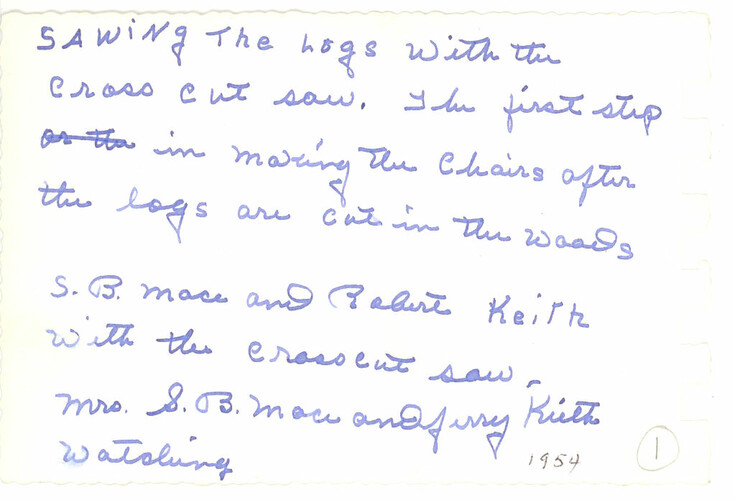 SAWING The Logs With the
Cross cut saw. The first step
or the in making the Chairs after
the logs are cut in the Woods
S. B. Mace and Robert Keith
With the crosscut saw.
Mrs. S. B. Mace and Jerry Keith
Watching
1954
1